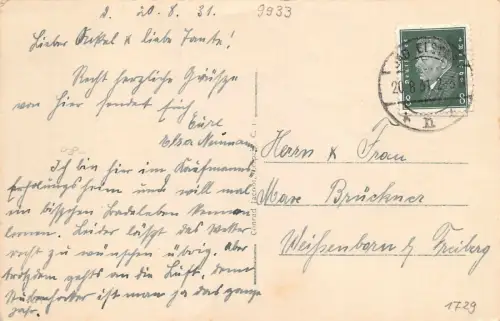 d. 20.8.31.
9933
Lieber Onkel & liebe Tante!
Recht herzliche Grüße
von hier sendet Euch
Eure
Elsa Neumann
Ich bin hier im Kaufmanns
Erholungsheim und will mal
ein bisschen Badeleben kennen
lernen. Leider lässt das Wetter
recht zu wünschen übrig, aber
trotzdem gehts an die Luft, denn
Stubenhocker ist man ja das ganze
Jahr.
Herrn & Frau
Max Brückner
Weißenborn b/ Freiberg
1729
8
20.8.31
* n *